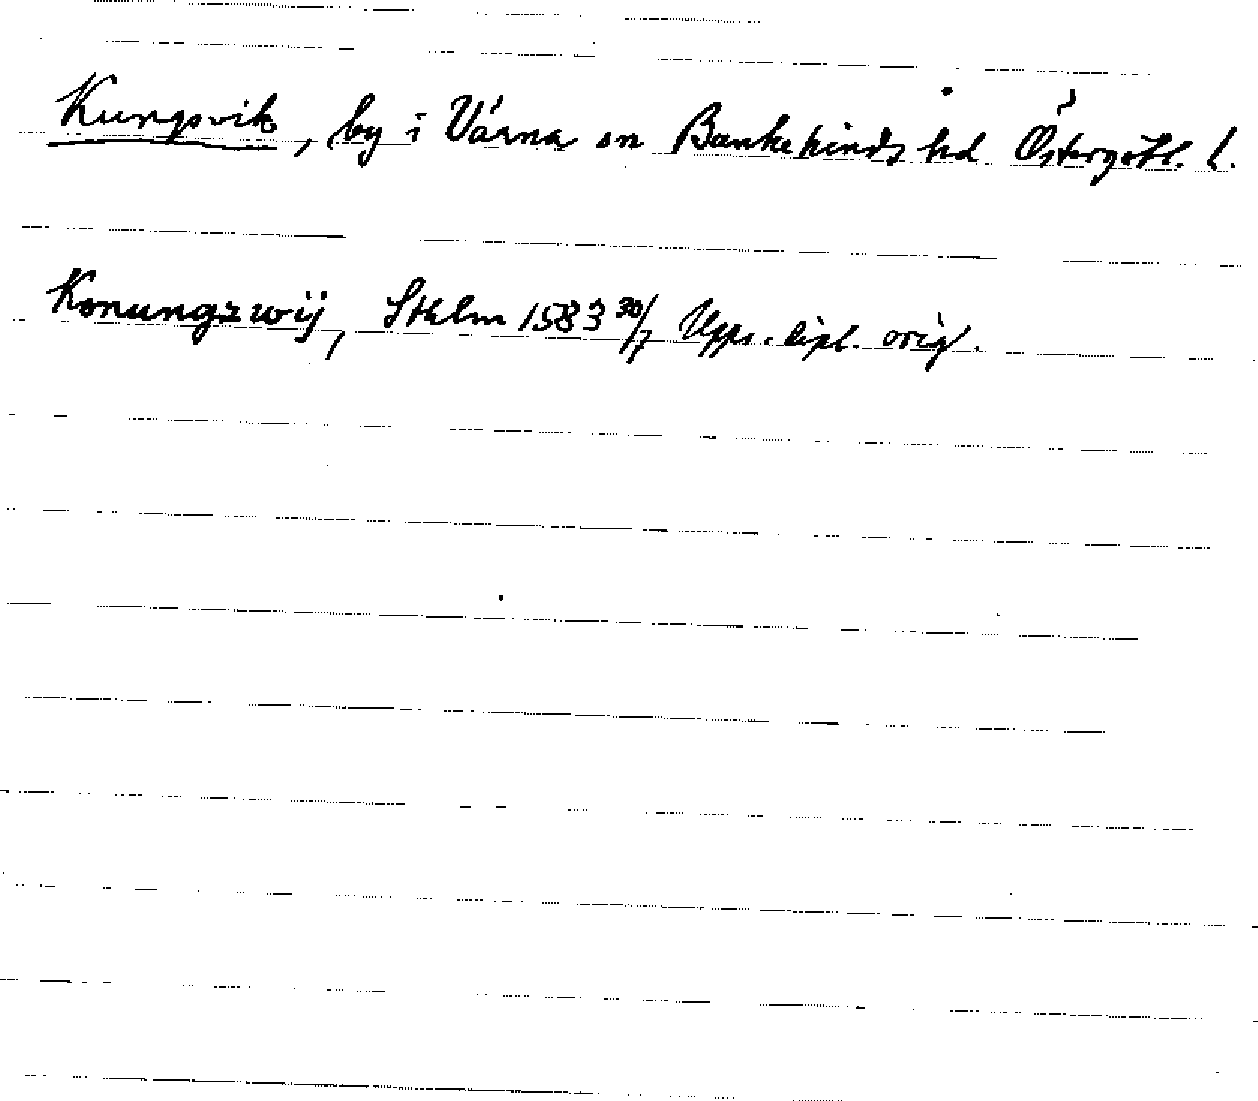 Kungsvik, by i Vårna sn Bankekinds hd Östergötl. l.
Konungzwij, Sthlm 1583 30/7 Upps. dipl. orig.